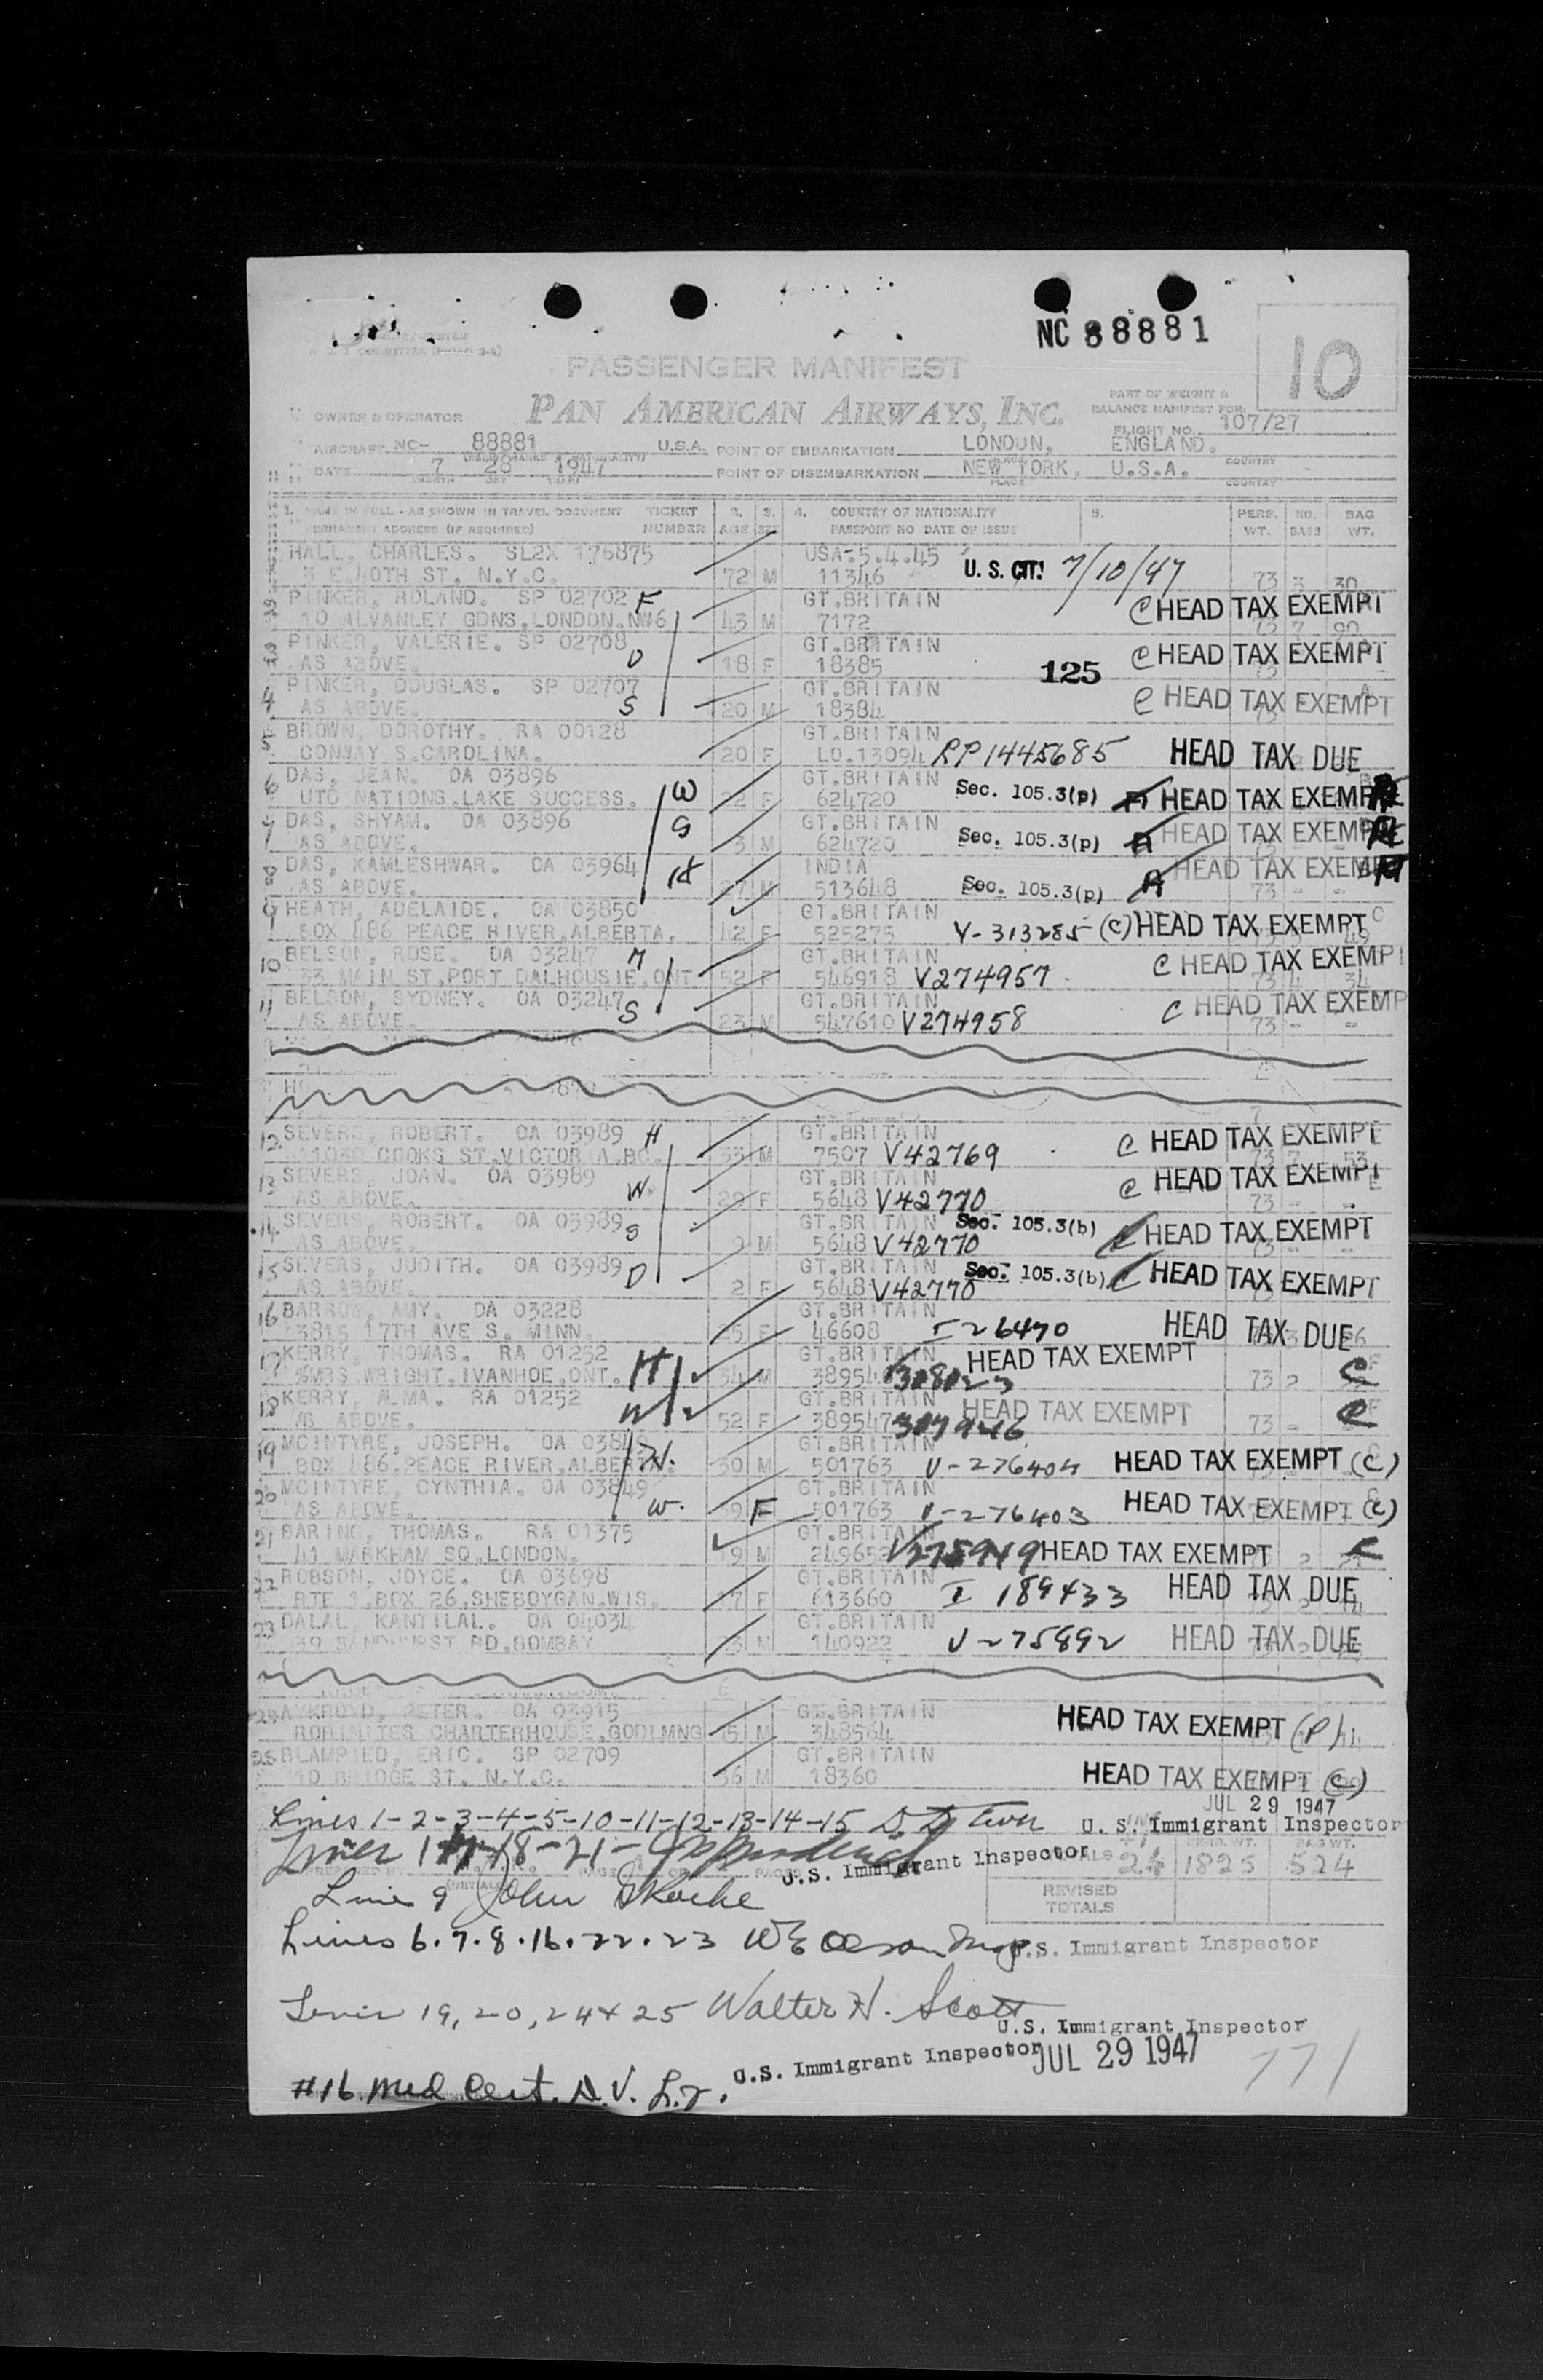 NC 88881
10
PASSENGER MANIFEST
OWNER & OPERATOR PAN AMERICAN AIRWAYS, INC. PART OF WEIGHT & BALANCE MANIFEST FOR
FLIGHT NO. 107/27
AIRCRAFT NC- 88881 U.S.A. POINT OF EMBARKATION LONDON, ENGLAND.
DATE 7 28 1947 POINT OF DISEMBARKATION NEW YORK, U.S.A.
PLACE COUNTRY
1. NAME IN FULL - AS SHOWN IN TRAVEL DOCUMENT TICKET 2. 3. 4. COUNTRY OF NATIONALITY 5. PERS. NO. BAG
PERMANENT ADDRESS (IF REQUIRED) NUMBER AGE SEX PASSPORT NO DATE OF ISSUE WT. BAGS WT.
HALL, CHARLES. SL2X 176875 USA-5.4.45
3 E.40TH ST. N.Y.C. 72 M 11346 U. S. CIT. 7/10/47 73 3 30
PINKER, ROLAND. SP 02702 F GT.BRITAIN C HEAD TAX EXEMPT
10 ALVANLEY GDNS,LONDON,NW6 43 M 7172 73 7 90
3 PINKER, VALERIE. SP 02708 D GT.BRITAIN C HEAD TAX EXEMPT
AS ABOVE. 18 F 18385 125
4 PINKER, DOUGLAS. SP 02707 S GT.BRITAIN C HEAD TAX EXEMPT
AS ABOVE. 20 M 18384
5 BROWN, DOROTHY. RA 00128 GT.BRITAIN
CONWAY S.CAROLINA. 20 F LO.13094 RP1445685 HEAD TAX DUE
6 DAS, JEAN. OA 03896 W GT.BRITAIN
UTD NATIONS,LAKE SUCCESS. 22 F 624720 Sec. 105.3(p) HEAD TAX EXEMPT
7 DAS, SHYAM. OA 03896 S GT.BRITAIN
AS ABOVE. 3 M 624720 Sec. 105.3(p) HEAD TAX EXEMPT
8 DAS, KAMLESHWAR. OA 03964 H INDIA HEAD TAX EXEMPT
AS ABOVE. 27 M 513648 Sec. 105.3(p) 73 - -
9 HEATH, ADELAIDE. OA 03850 GT.BRITAIN
BOX 486 PEACE RIVER,ALBERTA. 42 F 525275 V-313285 (C) HEAD TAX EXEMPT
10 BELSON, ROSE. OA 03247 M GT.BRITAIN C HEAD TAX EXEMPT
33 MAIN ST,PORT DALHOUSIE,ONT 52 F 546918 V274957 73 4 34
11 BELSON, SYDNEY. OA 03247 S GT.BRITAIN C HEAD TAX EXEMP
AS ABOVE. 23 M 547610 V274958 73 - -
12 SEVERS, ROBERT. OA 03989 H GT.BRITAIN C HEAD TAX EXEMPT
COOKS ST,VICTORIA,BC. 33 M 7507 V42769 73 7 53
13 SEVERS, JOAN. OA 03989 W. GT.BRITAIN C HEAD TAX EXEMPT
AS ABOVE. 29 F 5648 V42770 73 -
14 SEVERS, ROBERT. OA 03989 S GT.BRITAIN Sec. 105.3(b) HEAD TAX EXEMPT
AS ABOVE. 9 M 5648 V42770
15 SEVERS, JUDITH. OA 03989 D GT.BRITAIN Sec. 105.3(b) HEAD TAX EXEMPT
AS ABOVE. 2 F 5648 V42770
16 BARROW, AMY. OA 03228 GT.BRITAIN
3815 17TH AVE S. MINN. F 46608 I 26470 HEAD TAX DUE
17 KERRY, THOMAS. RA 01252 H GT.BRITAIN HEAD TAX EXEMPT
%MRS WRIGHT,IVANHOE,ONT. 54 M 73 2 C
18 KERRY, ALMA. RA 01252 W GT.BRITAIN HEAD TAX EXEMPT
AS ABOVE. 52 F 389547 307946 73 - C
19 MCINTYRE, JOSEPH. OA 03849 H. GT.BRITAIN
BOX 486,PEACE RIVER,ALBERTA. 30 M 501763 V-276404 HEAD TAX EXEMPT (C)
20 MCINTYRE, CYNTHIA. OA 03849 W. GT.BRITAIN
AS ABOVE. F 501763 V-276403 HEAD TAX EXEMPT (C)
21 BARING, THOMAS. RA 01375 GT.BRITAIN
41 MARKHAM SQ,LONDON. 19 M 249652 V275949 HEAD TAX EXEMPT C
22 ROBSON, JOYCE. OA 03698 GT.BRITAIN
RTE 1,BOX 26,SHEBOYGAN,WIS. 17 F 613660 I 189433 HEAD TAX DUE
23 DALAL, KANTILAL. OA 04034 GT.BRITAIN
39 SANDHURST RD,BOMBAY 23 M 140922 V-275892 HEAD TAX DUE
24 AYKROYD, PETER. OA 03915 GT.BRITAIN
ROBINITES CHARTERHOUSE,GODLMNG 15 M 348564 HEAD TAX EXEMPT (P)
25 BLAMPIED, ERIC. SP 02709 GT.BRITAIN
10 BRIDGE ST. N.Y.C. 36 M 18360 HEAD TAX EXEMPT (C)
JUL 29 1947
Lines 1-2-3-4-5-10-11-12-13-14-15 U. S. Immigrant Inspector
Lines 17-18-21- U.S. Immigrant Inspector
TOTALS 24 1825 524
REVISED TOTALS
Line 9 John Roche
Lines 6.7.8.16.22.23 U.S. Immigrant Inspector
Lines 19, 20, 24 + 25 Walter H. Scott
U.S. Immigrant Inspector
U.S. Immigrant Inspector JUL 29 1947
#16 Med Cert. 771